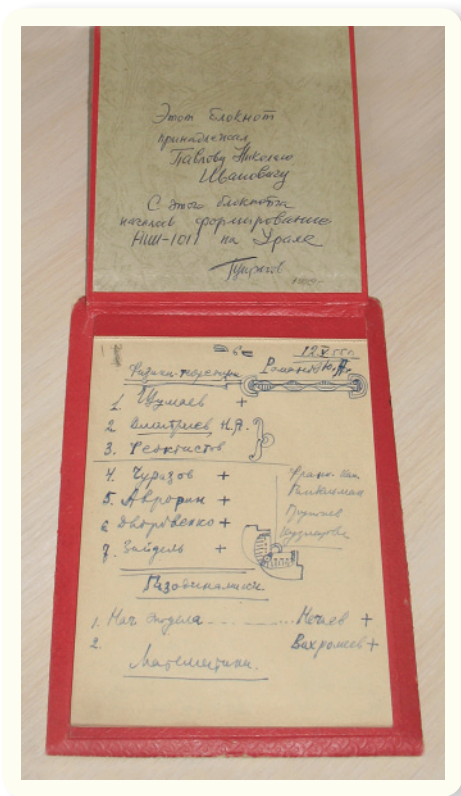 Этот блокнот
принадлежал
Павлову Николаю
Ивановичу
С этого блокнота
началось формирование
НИИ-1011 на Урале
- 6 -
12/V 55г.
Физики-теоретики
Романов Ю. А.
1. Шумаев +
2. Дмитриев, Н.А.
3. Феоктистов
4. Чуразов +
5. Аврорин +
6. Дворовенко +
7. Зайдель +
Франк-Кам.
Гандельман
Кузнецова
Газодинамики
1. Нач отдела ... Нечаев +
2. Вахромеев +
Математики.